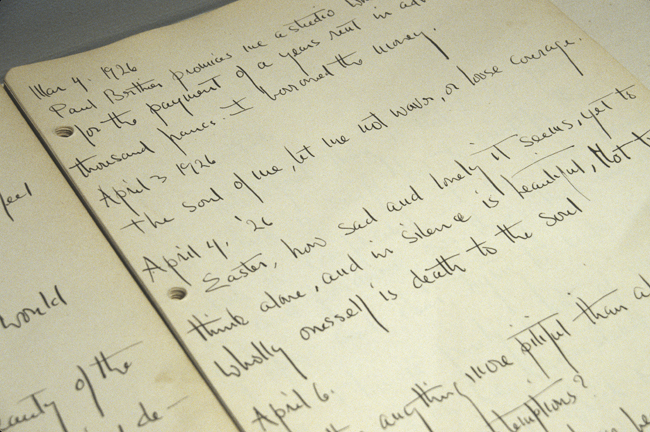 feel
would
beauty of the
de-
Mar 4. 1926
Paul promises me a studio
for the payment of a years rent in
thousand francs. I borrowed the money.
April 3 1926
the soul of me, let me not waver, or loose courage.
April 4. '26
Easter, how sad and lonely it seems, yet to
think alone, and in silence is beautiful, Not
wholly onesself is death to the soul
April 6.
anything more pitiful than